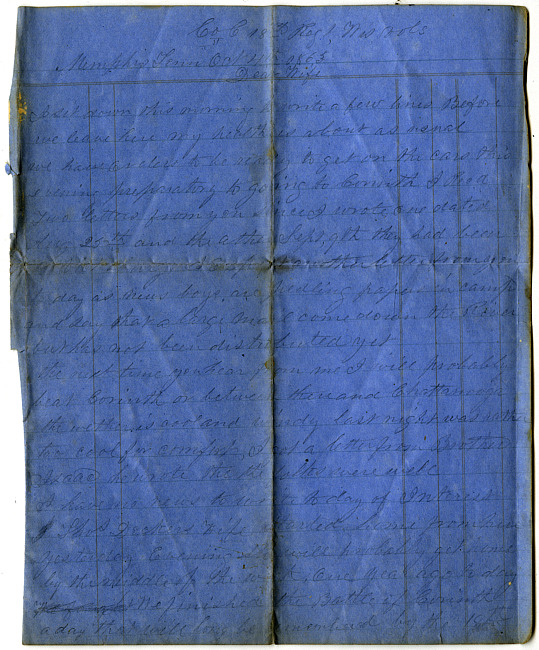 Co. C 18th Regt. Wis Vols
Memphis Tenn Oct 1863
Dear Wife
I sit down this morning to write a few lines Before
we leave here my health is about as usual
we have orders to be ready to get on the cars this
evening preparatory to going to Corinth I Recd
Two letters from you since I wrote one dated
Aug 25th and the other Sept 9th they had been
another letter from you
to day as news boys are pedling papers in camp
and say that a large mail come down the River
but has not been distributed yet
the next time you hear from me I will probably
be at Corinth or between there and Chattanooga
the wether is cool and windy last night was rather
too cool for comfort I got a letter from Brother
Isaac he wrote that the folks were well
I have no news to write to day of Interest
Wife started home from here
yesterday Evening will probably get home
by the middle of the week One year ago to day
We finished the Battle of Corinth
a day that will long be remembered by the 18th